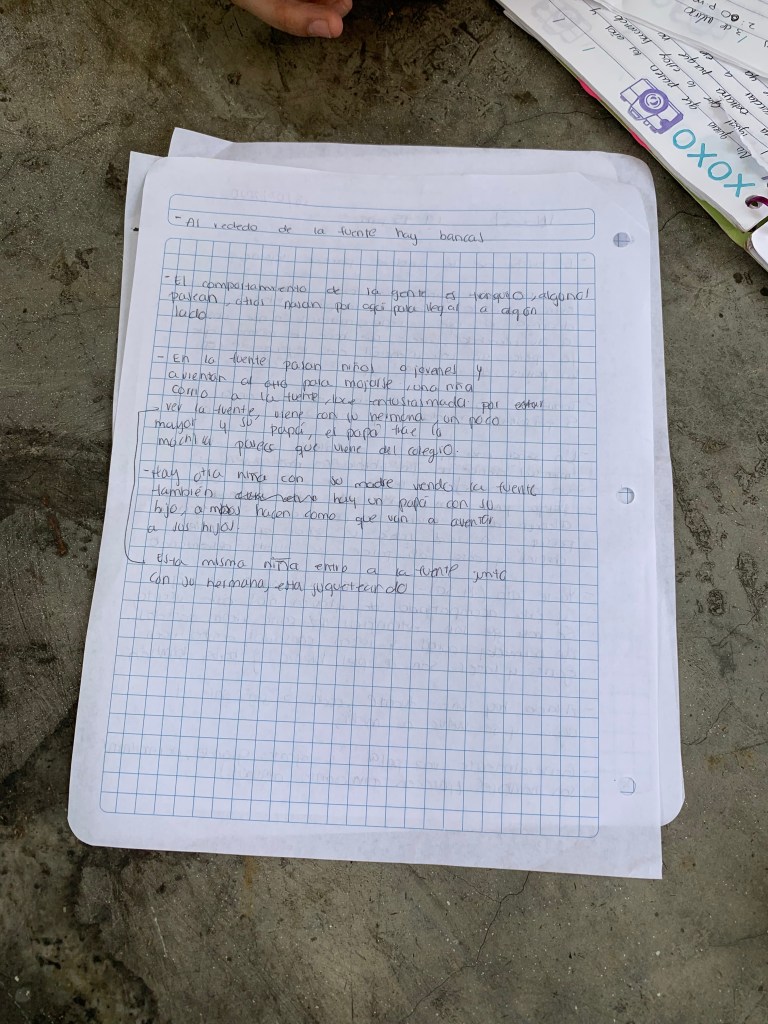 - Al rededo de la fuente hay bancas
- El comportamiento de la gente es tanquilo, algunos
pasean, otros pasan por aqui para llegar a algún
lado
- En la fuente pasan niños o jovenes y
avientan al otro para mojarse, una niña
como a la fuente, luce entusiasmada por estar
ver la fuente, viene con su hermana un poco
mayor y su papá, el papá trae la
mochila parece que viene del colegio.
- Hay otra niña con su madre viendo la fuente
tambien hay un papá con su
hijo, ambos hacen como que van a aventar
a sus hijos
Esta misma niña entro a la fuente junto
con su hermana, esta jugueteando
XOXO